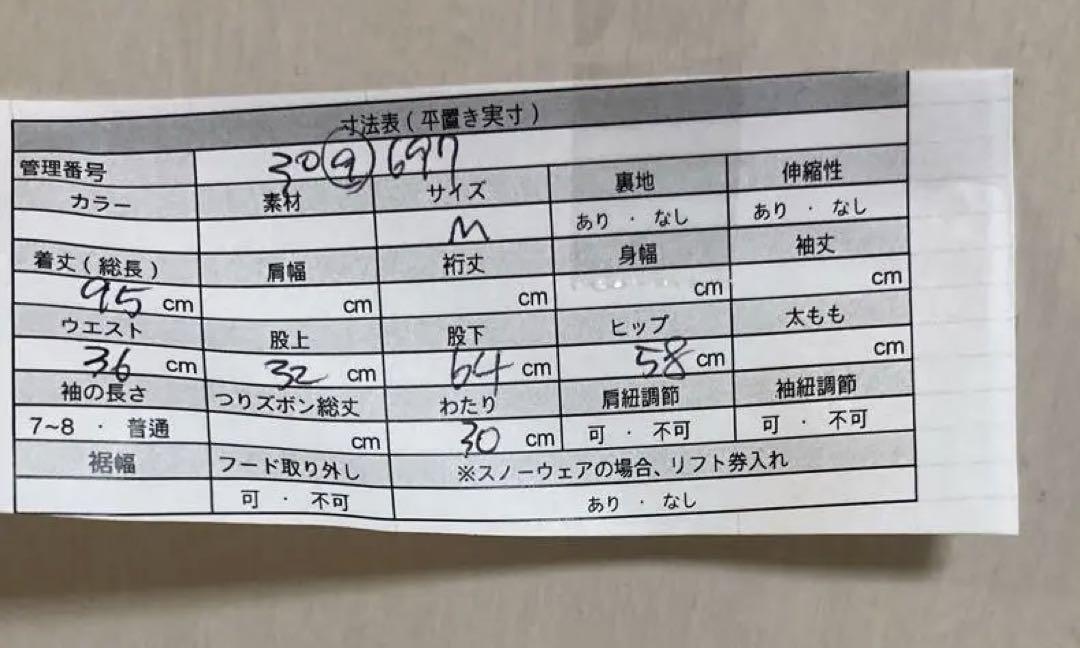 寸法表(平置き実寸)
管理番号 309697
カラー 素材 サイズ 裏地 伸縮性
M あり・なし あり・なし
着丈(総長) 肩幅 裄丈 身幅 袖丈
95 cm cm cm cm cm
ウエスト 股上 股下 ヒップ 太もも
36 cm 32 cm 64 cm 58 cm cm
袖の長さ つりズボン総丈 わたり 肩紐調節 袖紐調節
7~8・普通 cm 30 cm 可・不可 可・不可
裾幅 フード取り外し ※スノーウェアの場合、リフト券入れ
可・不可 あり・なし